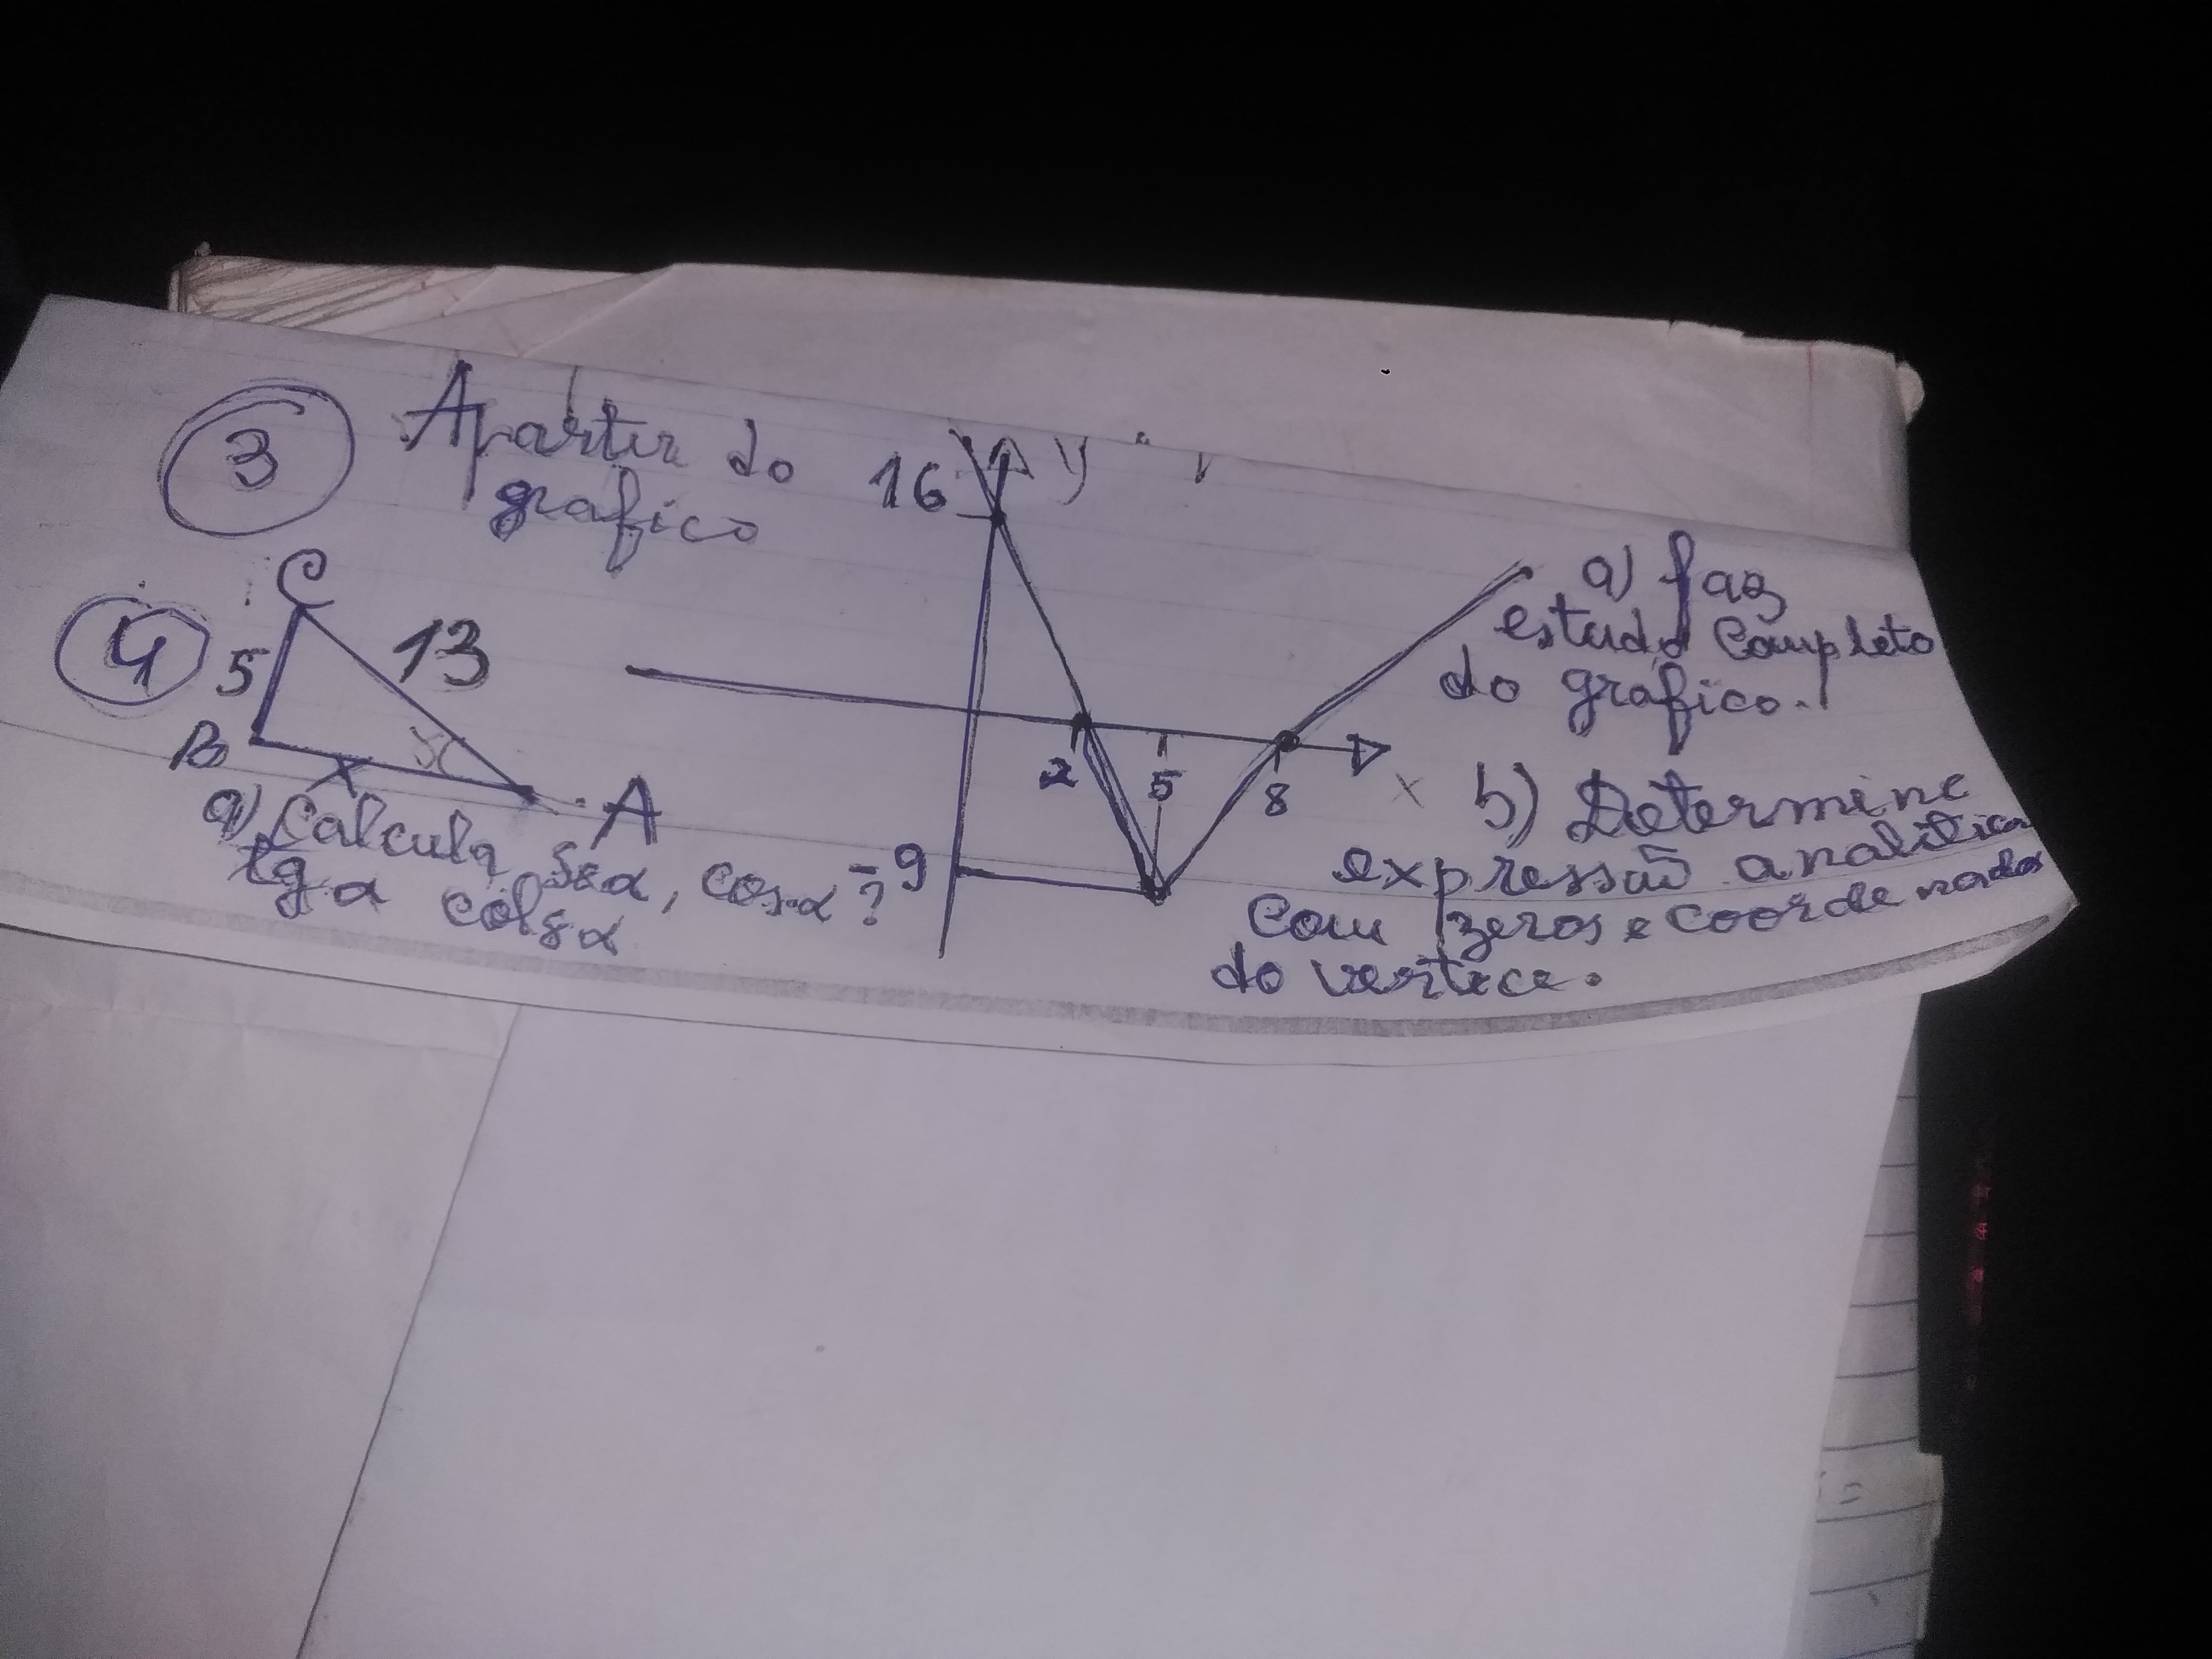 3 Apartir do
grafico
16 y
2 5 8 x
-9
a) faz
estudo completo
do gráfico.
b) Determine
expressão analitica
com zeros e coordenadas
do vertice.
4 C
5 13
B x A
a) Calcula senα, cosα?
tgα cotgα